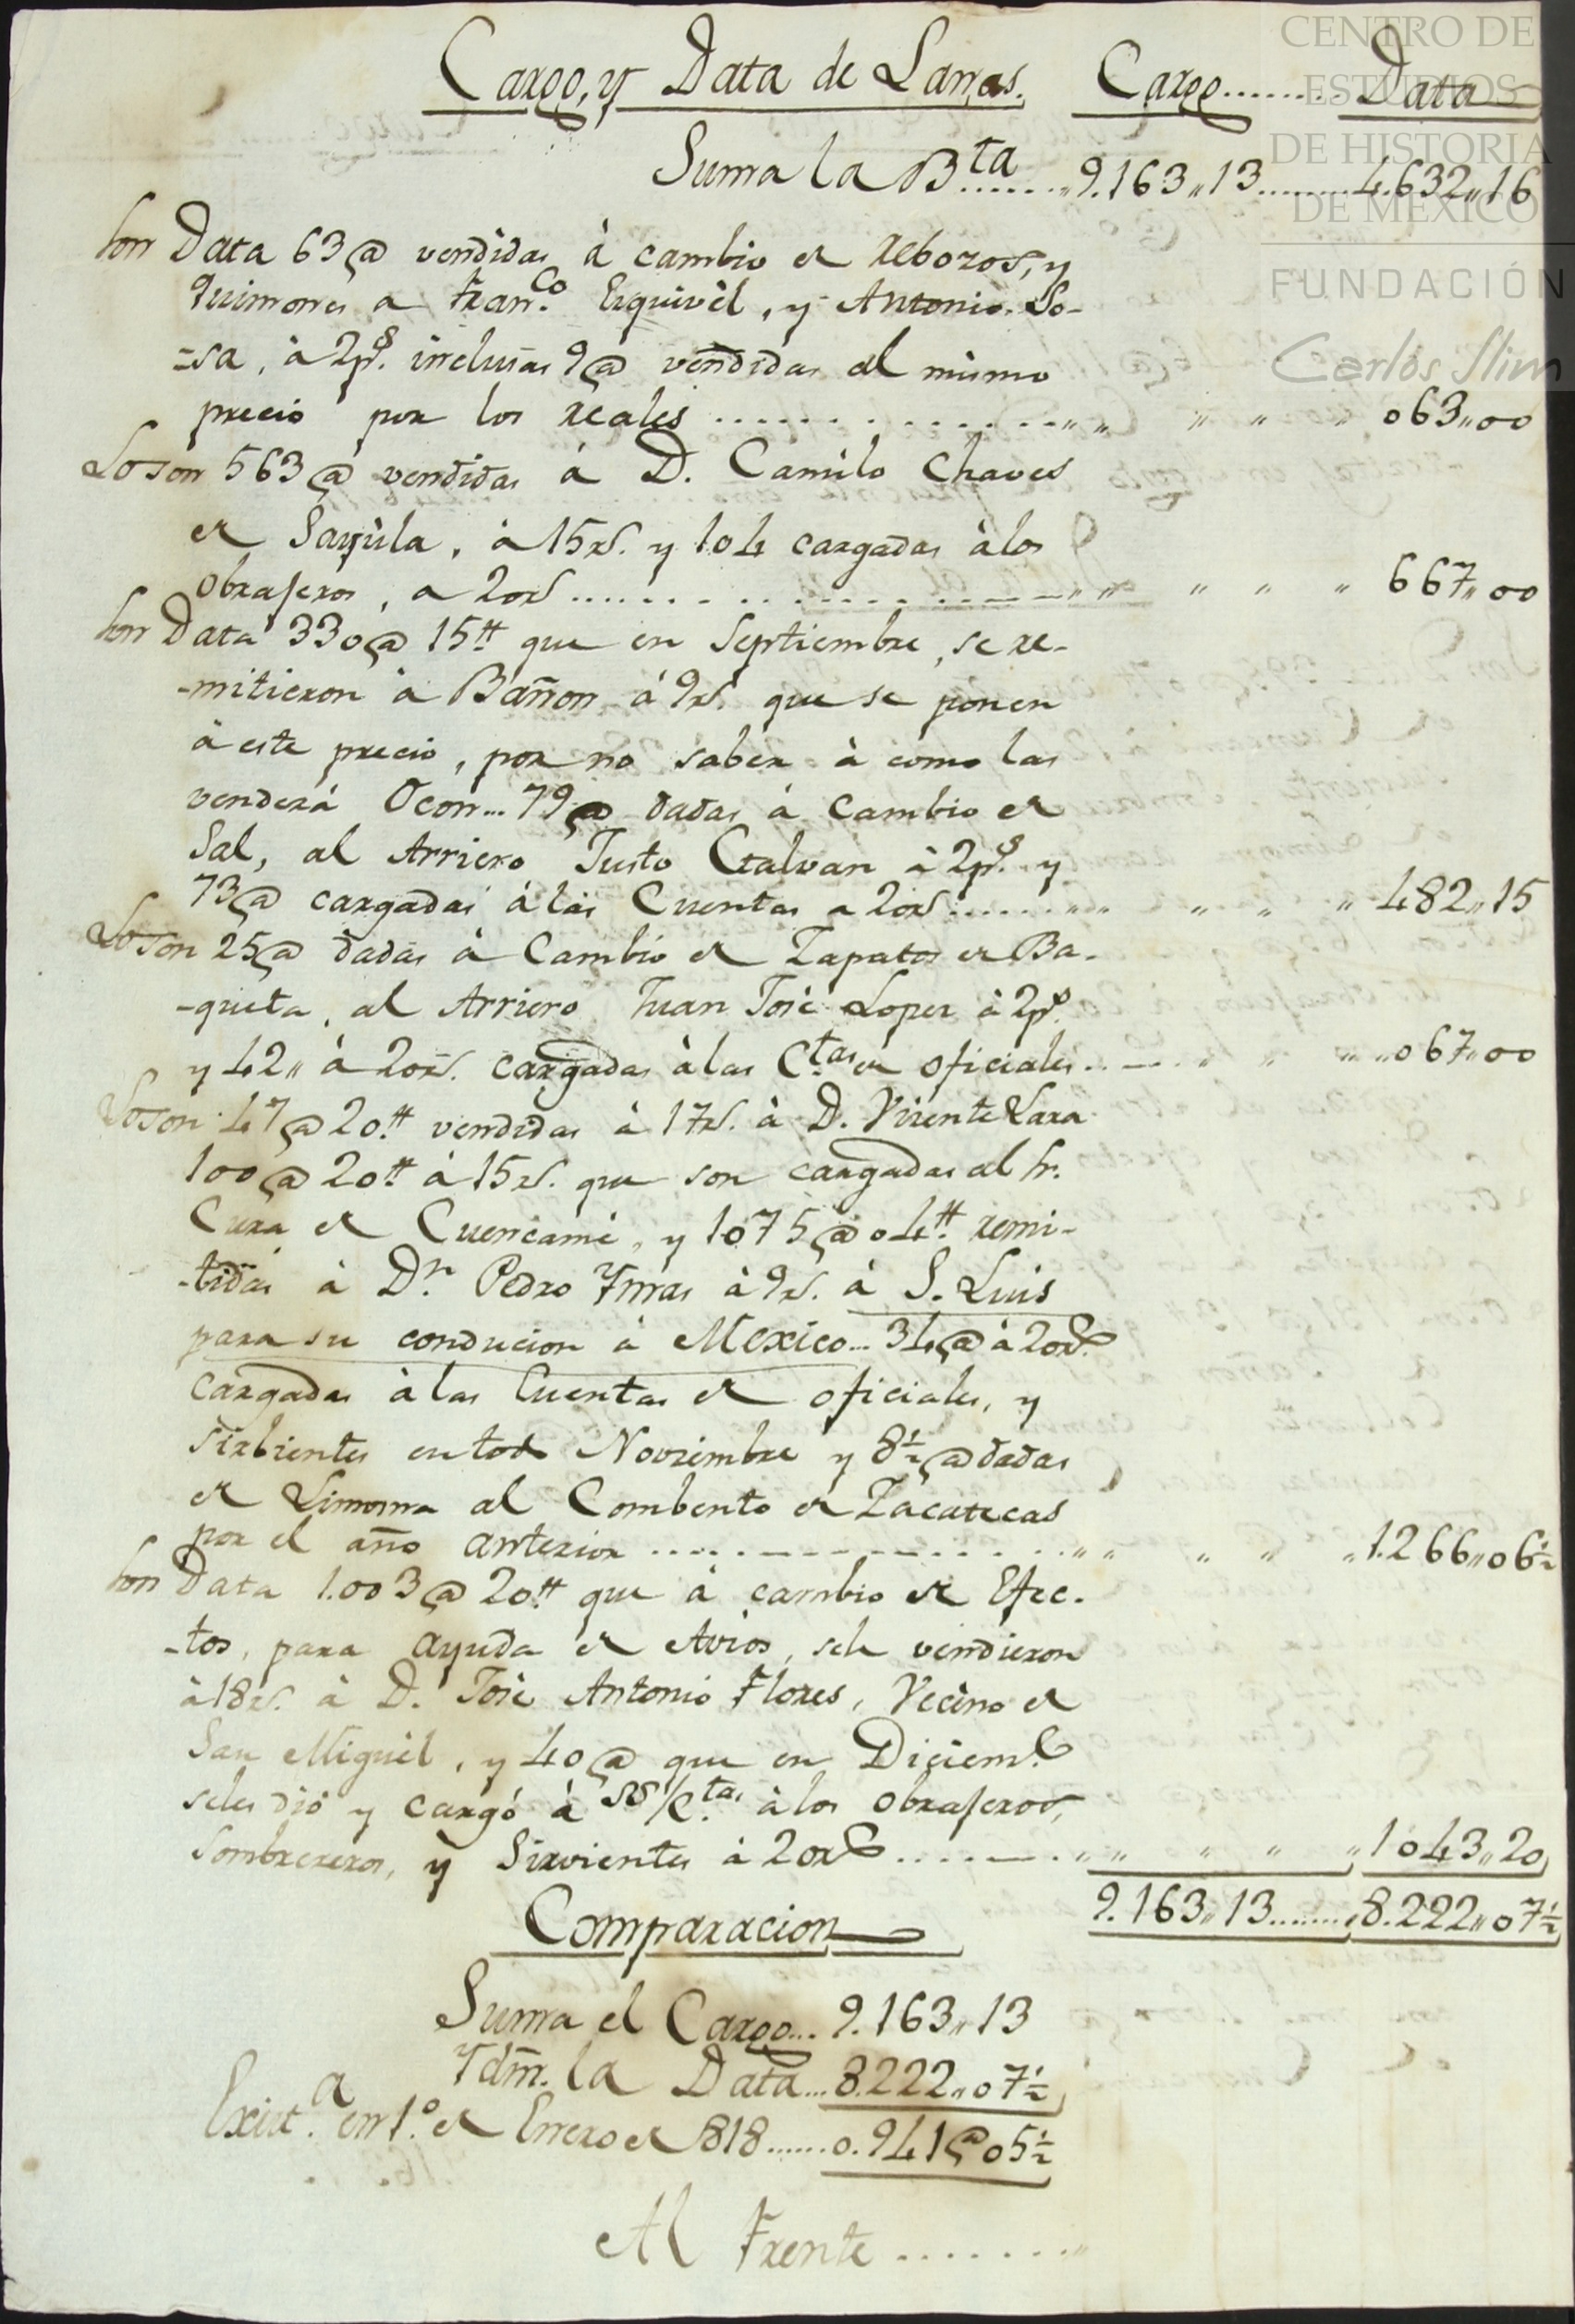 CENTRO DE
ESTUDIOS
DE HISTORIA
DE MÉXICO
FUNDACIÓN
Carlos Slim
Cargo, y Data de Lanas. Cargo........ Data
Suma la B.ta ....... 9.163,,13.........4.632,,16
Son Data 63@ vendidas à cambio de Rebozos, y
Quimones a Fran.co Esquivèl, y Antonio So-
-sa, à 2p.s inclusas 9@ vendidas al mismo
precio por los reales .............. ,, ,, ,, ,, ,, 063,,00
Lo son 563@ vendidas à D. Camilo Chaves
de Sayùla, à 15r.s y 104 cargadas à los
obrajeros, a 20r.s .............. ,, ,, ,, ,, ,, 667,,00
Son Data 330@ 15tt que en Septiembre, se re-
-mitieron à Bañon à 9r.s que se ponen
à este precio, por no saber à como las
venderá Ocon... 79@ dadas à cambio de
Sal, al Arriero Justo Galvan à 2p.s y
73@ cargadas à las Cuentas a 20r.s ...... ,, ,, ,, ,, ,, 482,,15
Lo son 25@ dadas à Cambio de Zapatos de Ba-
-queta, al Arriero Juan José Lopez à 2p.s
y 42,, à 20r.s cargadas à las C.tas de oficiales...... ,, ,, ,, 067,,00
Lo son 47@ 20.tt vendidas à 17r.s à D. Visente Lara
100@ 20tt à 15r.s que son cargadas al Sr.
Cura de Cuencamé, y 1075@ 04.tt remi-
-tidas à D.n Pedro Ymas à 9r.s à S. Luis
para su conducion à Mexico... 34@ à 20r.s
cargadas à las Cuentas de oficiales, y
sirbientes en todo Noviembre y 8½@ dadas
de Limosna al Combento de Zacatecas
por el año anterior .............. ,, ,, ,, ,, ,, 1.266,,06½
Son Data 1.003@ 20.tt que à cambio de Efec-
-tos, para ayuda de Avios, sele vendieron
à 18r.s à D. José Antonio Flores, Vecino de
San Miguèl, y 40@ que en Diciem.e
seles dió y cargó à SS/C.tas à los obrajeros,
Sombrereros, y Sirvientes à 20r.s .......... ,, ,, ,, ,, ,, 1043,,20
9.163,,13........ 8.222,,07½
Comparacion
Suma el Cargo... 9.163,,13
Ydm. la Data... 8.222,,07½
Exist.a en 1.o de Enero de 818...... 0.941@05½
Al Frente ........